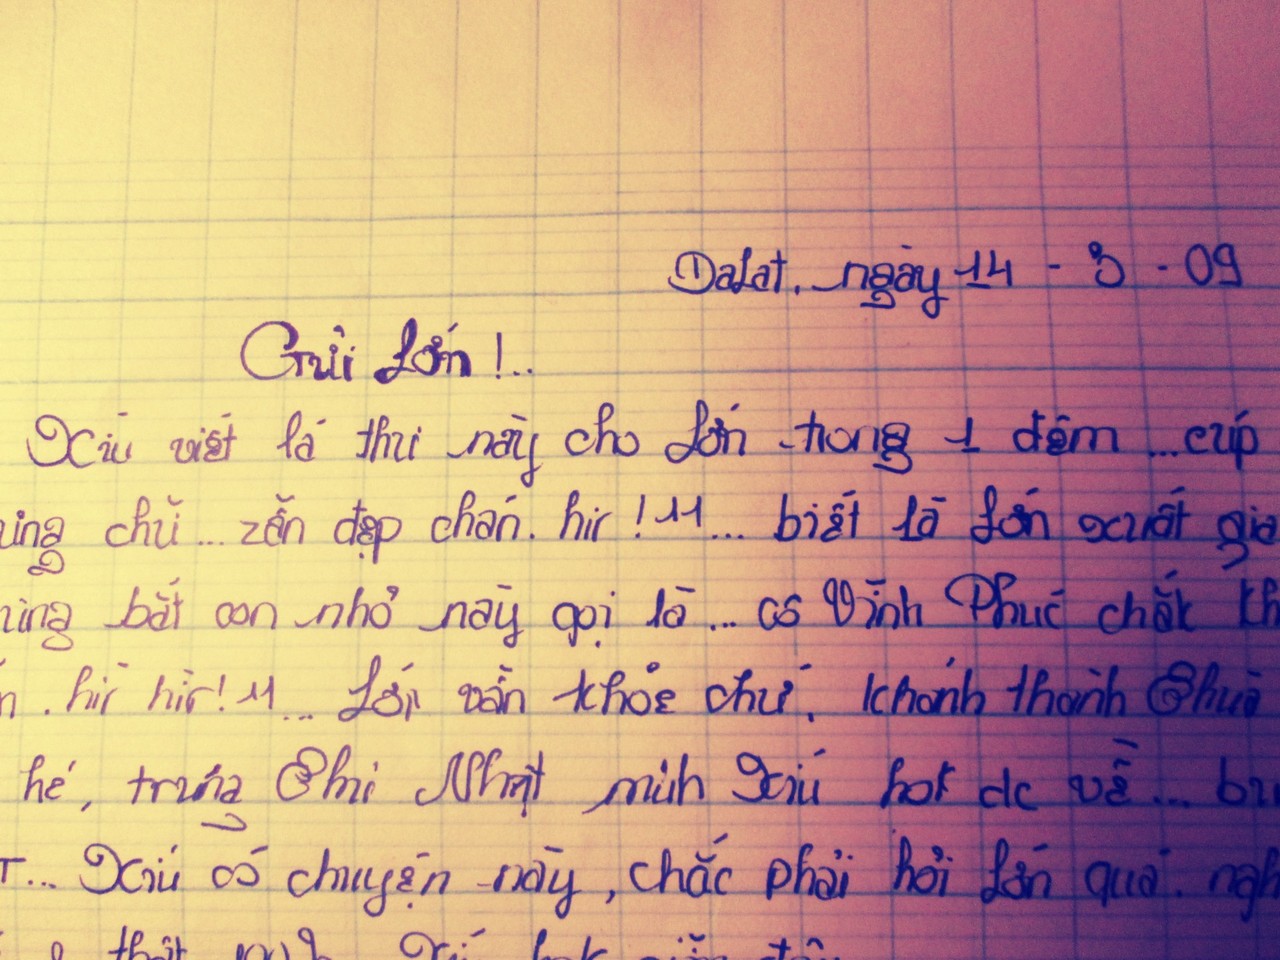 DaLat, ngày 14 - 3 - 09
Gửi Lớn !..
Xíu viết lá thư này cho Lớn trong 1 đêm ... cúp
chữ ... zẫn đẹp chán. hir ! 11 ... biết là Lớn xuất gia
bắt con nhỏ này gọi là ... cô Vĩnh Phúc chắk
hir hir ! 11 ... Lớn vẫn khỏe chứ. khánh thành Chùa
hé, trúng Chủ Nhật mình Xíu hok dc về ...
... Xíu có chuyện này, chắc phải hỏi Lớn quá.
thật Xíu hok